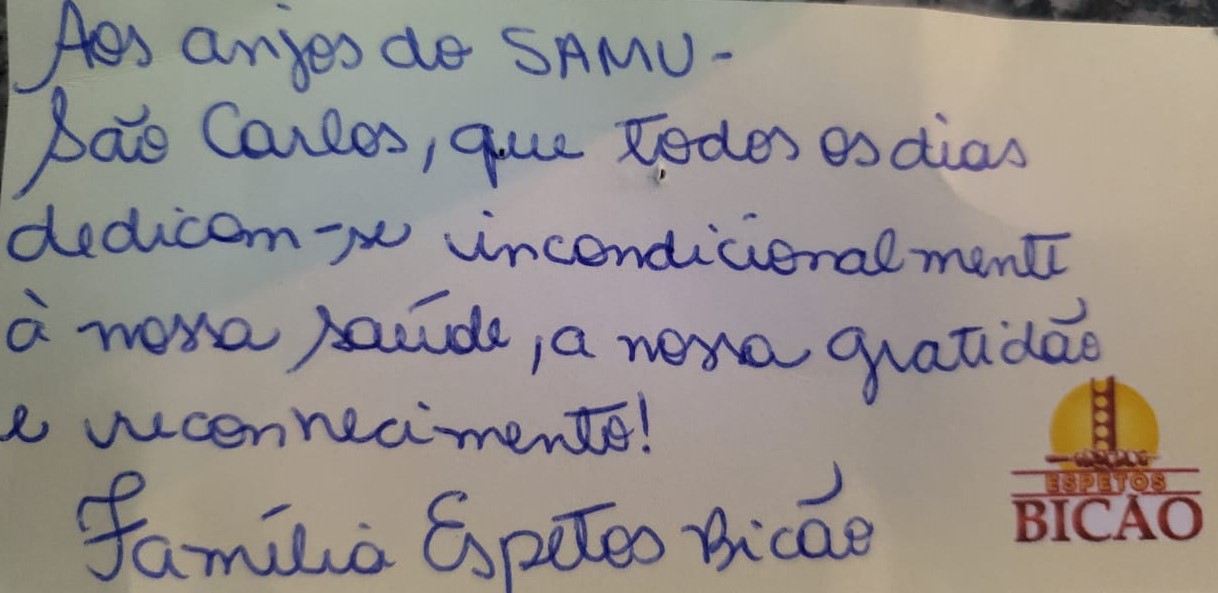 Aos anjos do SAMU -
São Carlos, que todos os dias
dedicam-se incondicionalmente
à nossa saúde, a nossa gratidão
e reconhecimento!
Família Espetos Bicão
ESPETOS
BICÃO